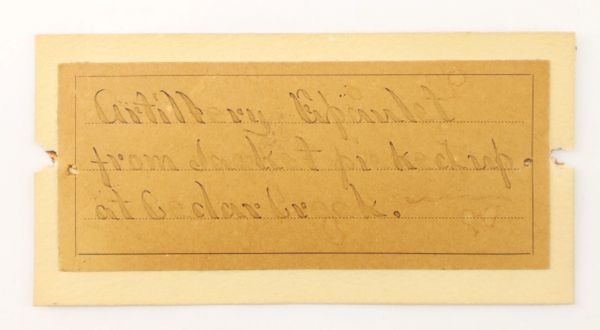 Artillery Epaulet
from Jacket picked up
at Cedar Creek.